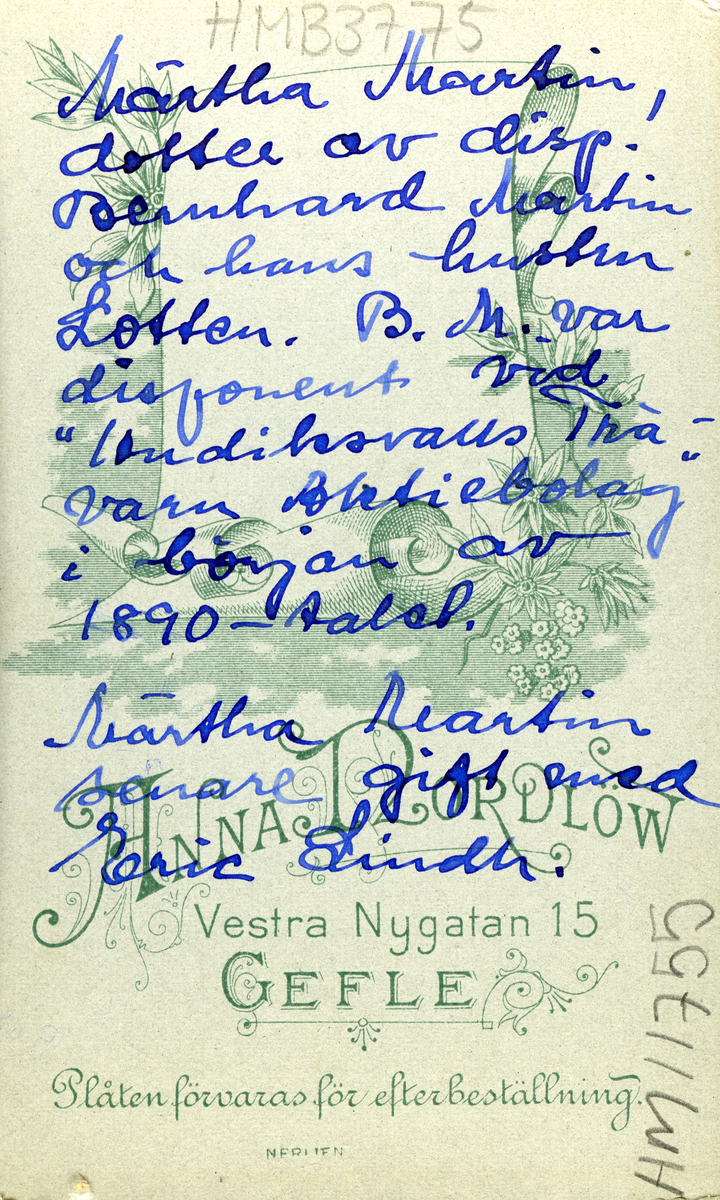 HMB3775
Märtha Martin,
dotter av disp.
Bernhard Martin
och hans hustru
Lotten. B. M. var
disponent vid
"Hudiksvalls Trä-
varu Aktiebolag"
i början av
1890-talet.
Märtha Martin
senare gift med
Eric Lindh.
ANNA NORDLÖW
Vestra Nygatan 15
GEFLE
Plåten förvaras för efterbeställning.
NERLIEN
HM/11755